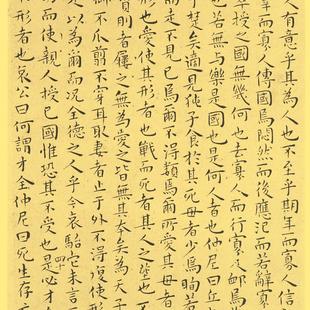 人有意乎其為人也不至乎期年而寡人信
宰而寡人傳國焉悶然而後應氾而若辭寡
授之國無幾何也去寡人而行寡人卹焉
也若無與樂是國也是何人者也仲尼曰丘
于楚矣適見㹠子食於其死母者少焉眴若
而走不見已焉爾不得類焉爾所愛其母者
形也愛使其形者也戰而死者其人之葬也
資刖者之屨無為愛之皆無其本矣為天子
御不爪翦不穿耳取妻者止于外不得復使形
足以為爾而況全德之人乎今哀駘它未言
四十
而使親人授己國惟恐其不受也是必才
形者也哀公曰何謂才全仲尼曰死生存